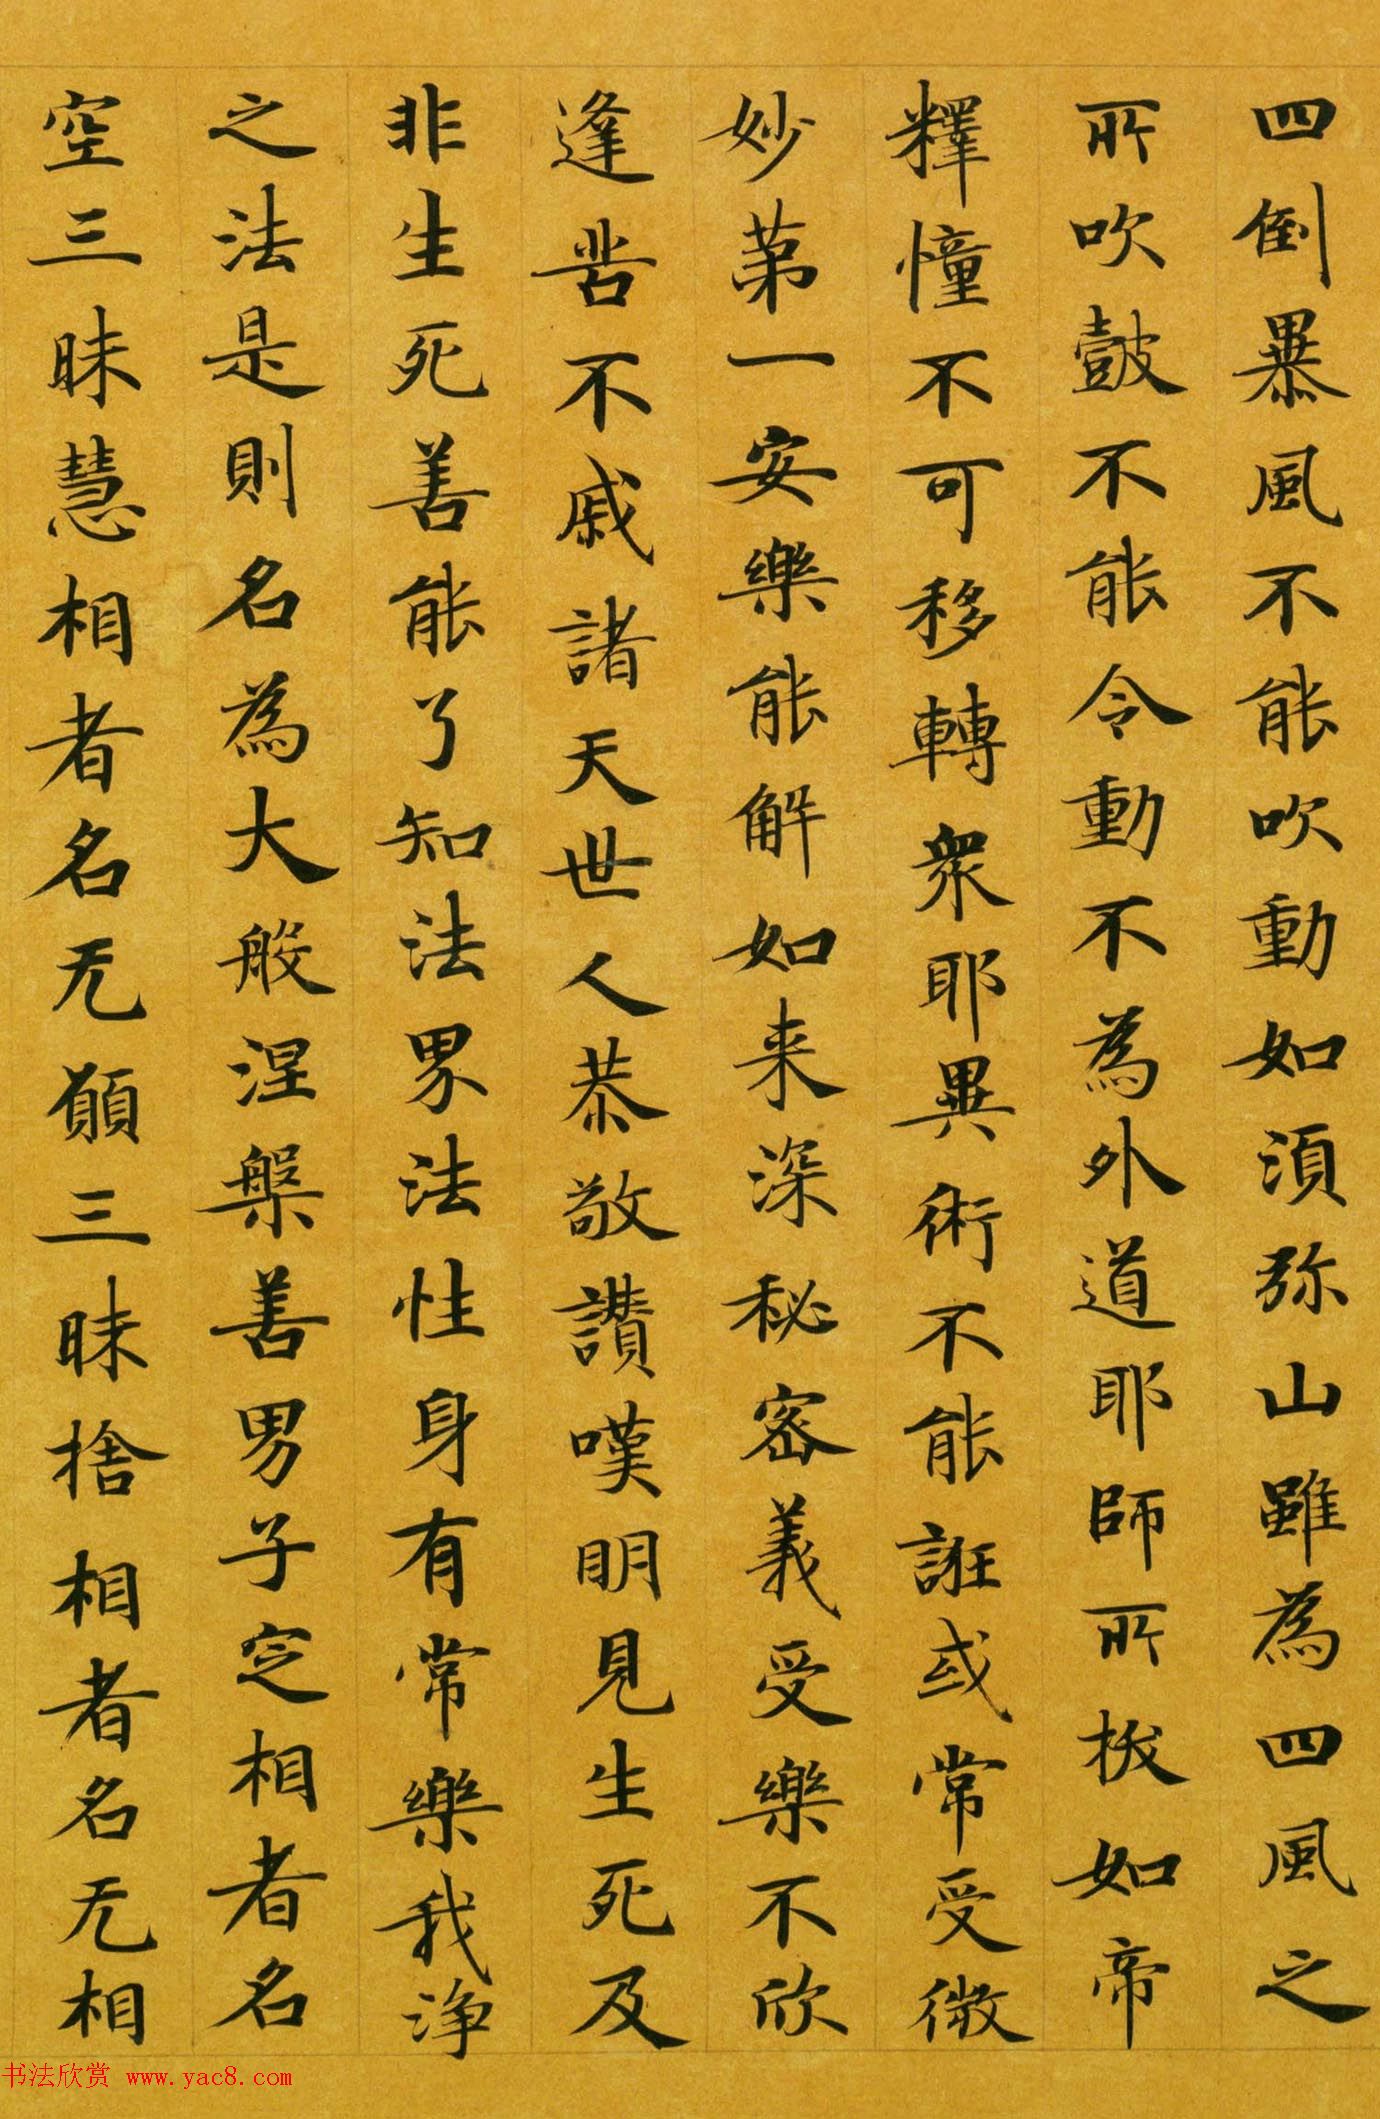 四倒暴風不能吹動如須弥山雖為四風之
所吹鼓不能令動不為外道耶師所拔如帝
釋憧不可移轉衆耶異術不能誑或常受微
妙第一安樂能解如来深秘密義受樂不欣
逢苦不慼諸天世人恭敬讃嘆明見生死及
非生死善能了知法界法性身有常樂我浄
之法是則名為大般涅槃善男子空相者名
空三昧慧相者名无願三昧捨相者名无相
书法欣赏 www.yac8.com